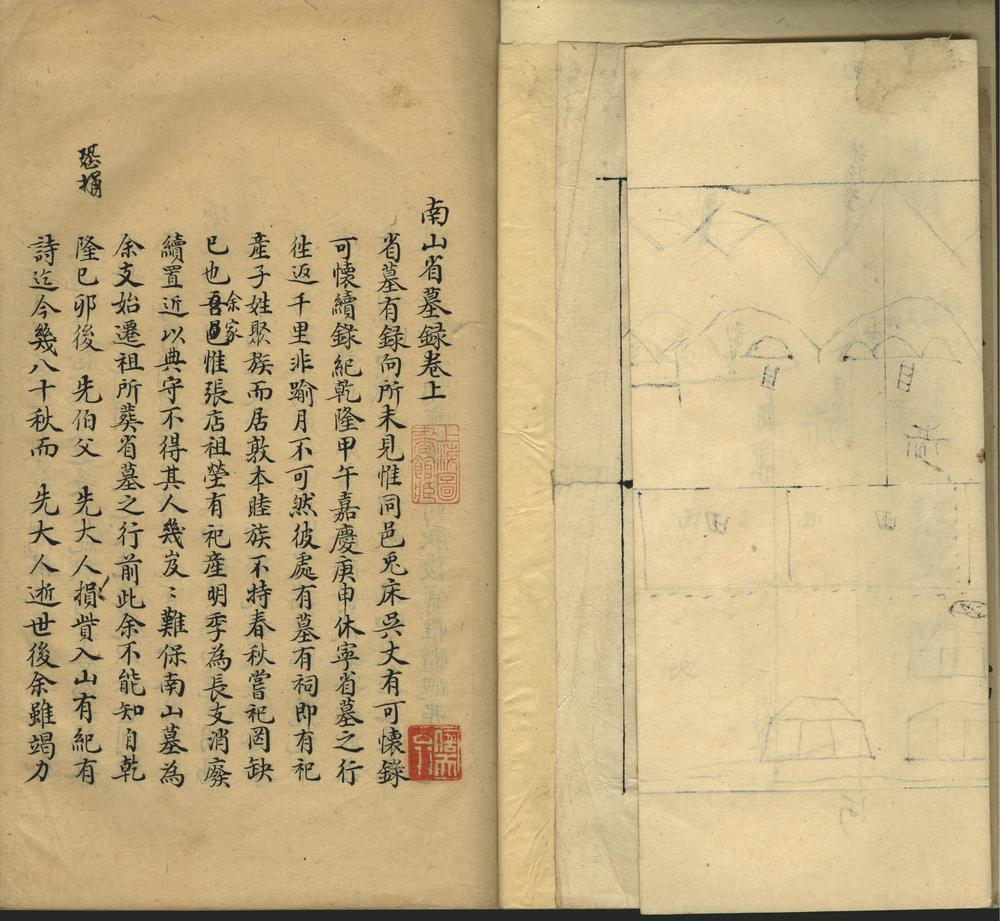 南山省墓錄卷上
省墓有録向所未見惟同邑兎床吳丈有可懷錄
可懷續錄紀乾隆甲午嘉慶庚申休寧省墓之行
徃返千里非踰月不可然彼處有墓有祠即有祀
產子姓聚族而居敦本睦族不特春秋嘗祀罔缺
已也吾邑惟張店祖塋有祀產明季為長支消廢
余家
續置近以典守不得其人幾岌〻難保南山墓為
余支始遷祖所葬省墓之行前此余不能知自乾
隆巳卯後 先伯父 先大人損貲入山有紀有
恐捐
詩迄今幾八十秋而 先大人逝世後余雖竭力
上海圖
書館藏
田
田